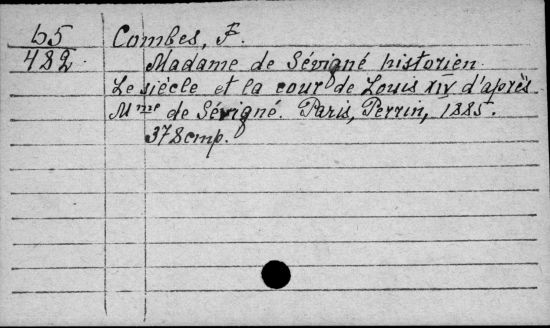 65 Combes, F.
482. Madame de Sévigné historien.
Le siècle et la cour de Louis XIV d'après
Mme de Sévigné. Paris, Perrin, 1885.
378cmp.